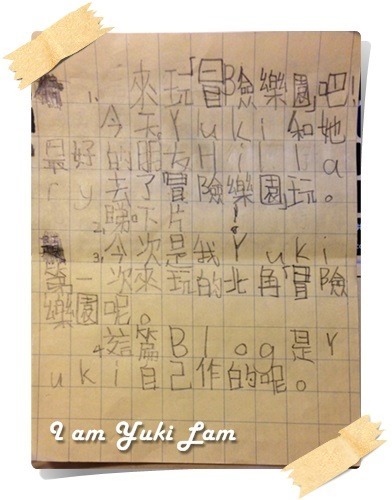 1. 來玩「冒險樂園」吧!
今天Yuki和她
最好的朋友Hilla
ry去了冒險樂園玩。
2. 睇下片!
3. 今次是我Yuki
第一次來玩的北角「冒險
樂園」呢。
4. 這篇Blog是Y
uki自己作的呢。
I am Yuki Lam